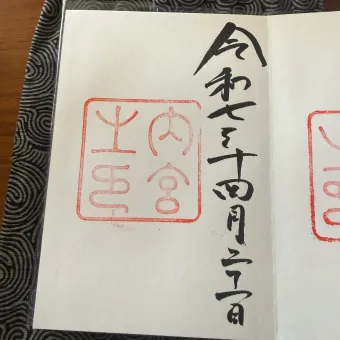 令和七年四月二十一日
内宮
之印